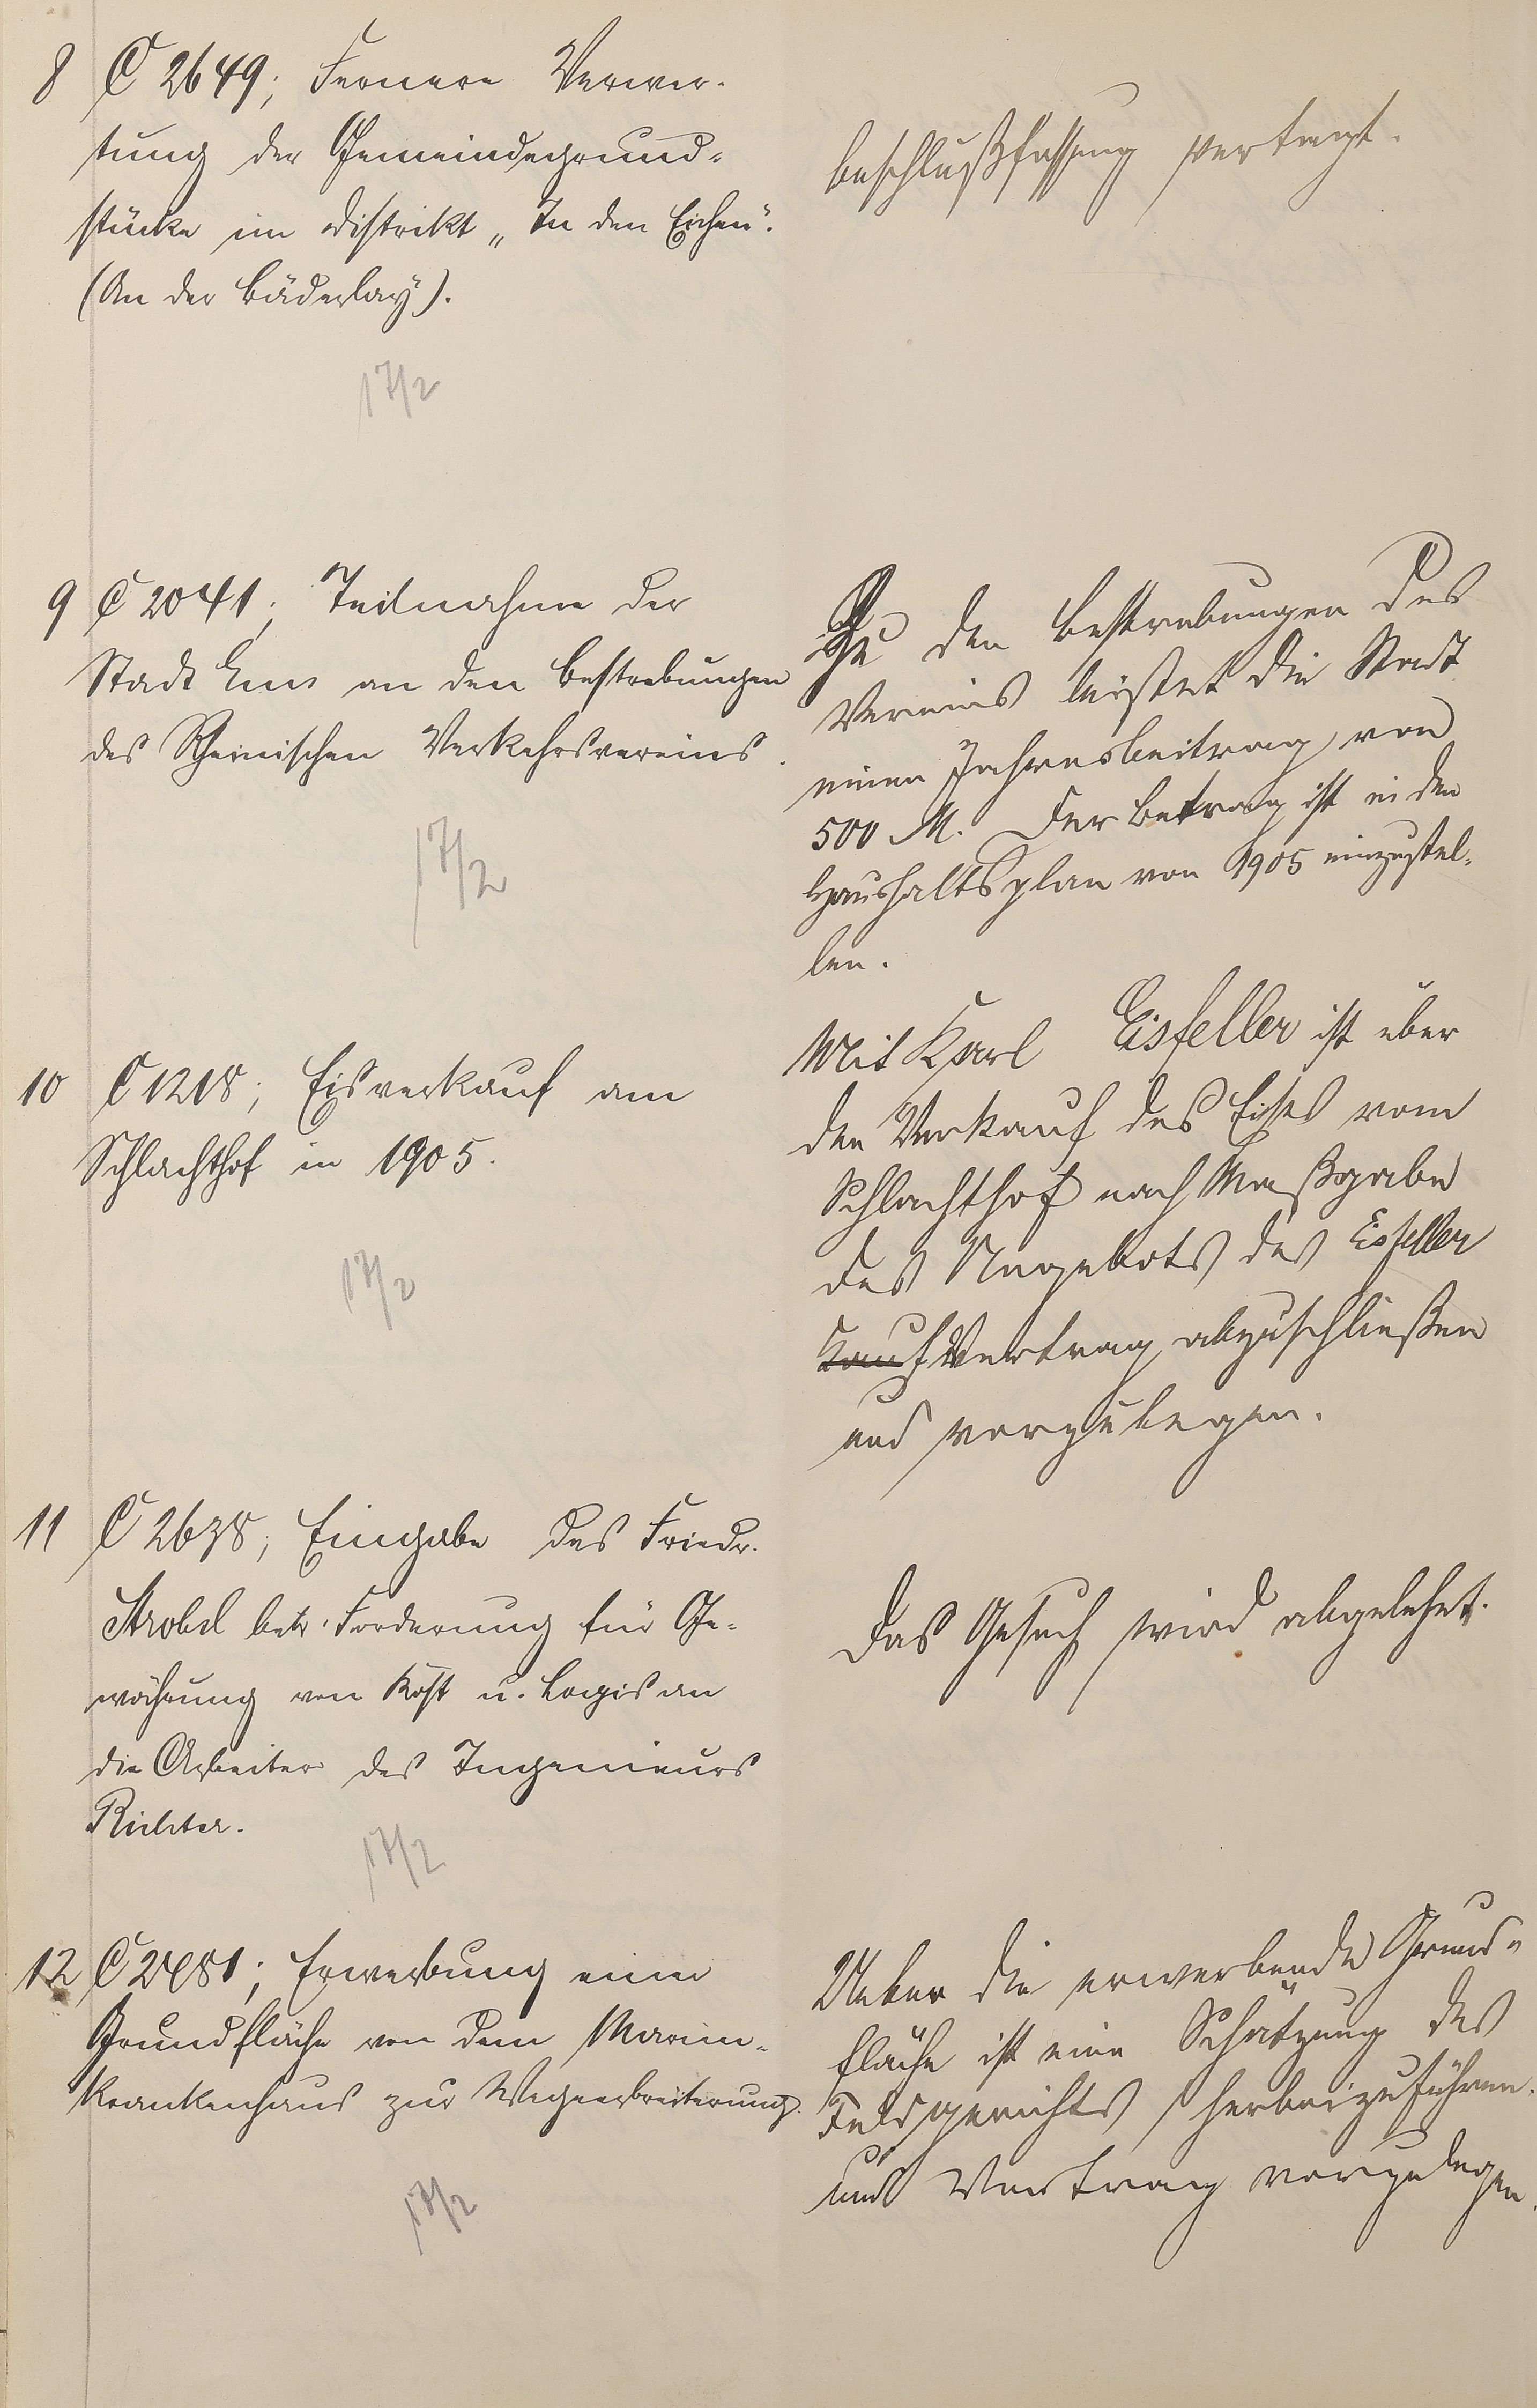 8 C 2649; Fernere Verwer-
tung der Gemeindegrund-
stücke im Distrikt „In den Eichen“.
(An der Bäderlay).
17/2
Beschlußfassung vertagt.
9 C 2041; Teilnahme der
Stadt Ems an den Bestrebungen
des Rheinischen Verkehrsvereins.
17/2
Zu den Bestrebungen des
Vereins leistet die Stadt
einen Jahresbeitrag von
500 M. Der Betrag ist in den
Haushaltsplan von 1905 einzustel-
len.
10 C 1218; Eisverkauf am
Schlachthof in 1905.
17/2
Mit Karl Eisfeller ist über
den Verkauf des Eises vom
Schlachthof nach Maßgabe
des Angebots des Eisfeller
Kauf Vertrag abzuschließen
und vorzulegen.
11 C 2638; Eingabe des Friedr.
Strobel betr. Forderung für Ge-
währung von Kost u. Logis an
die Arbeiter des Ingenieurs
Richter.
17/2
Das Gesuch wird abgelehnt.
12 C 2481; Erwerbung einer
Grundfläche von dem Marien-
krankenhaus zur Wegverbreiterung.
17/2
Ueber die erwerbende Grund-
fläche ist eine Schätzung des
Feldgerichts herbeizuführen
und Vertrag vorzulegen.